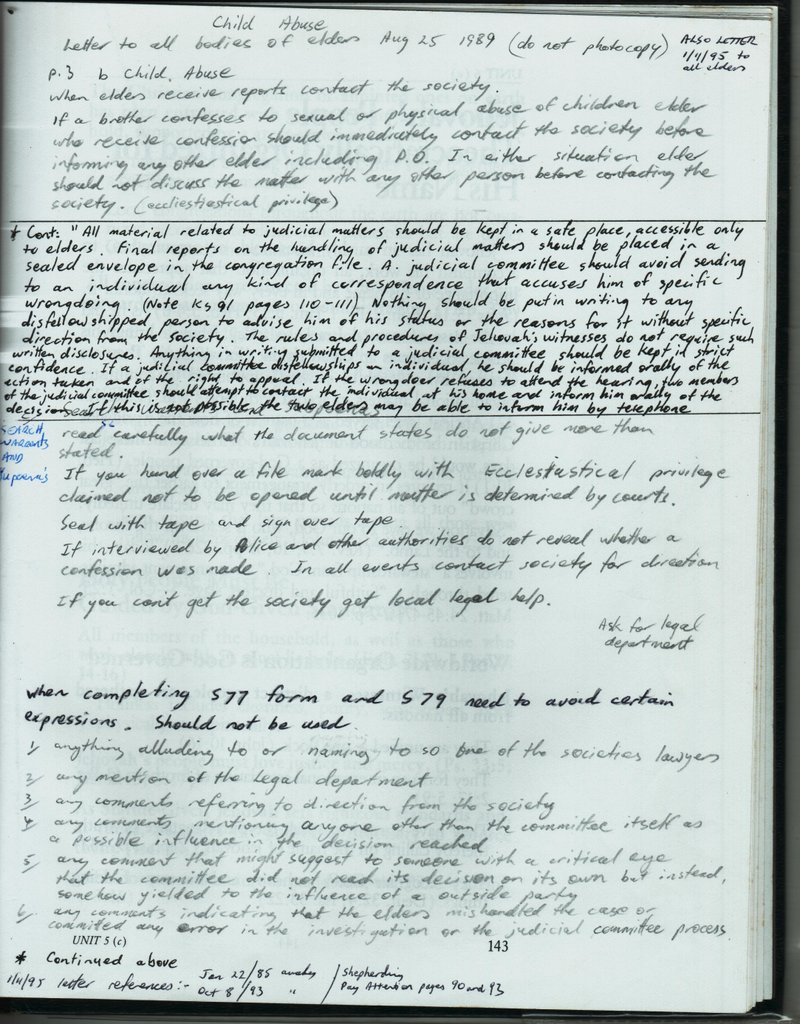 Child Abuse
Letter to all bodies of elders Aug 25 1989 (do not photocopy)
ALSO LETTER
1/11/95 to
all elders
p.3 b Child Abuse
when elders receive reports contact the society.
If a brother confesses to sexual or physical abuse of children elder
who receive confession should immediately contact the society before
informing any other elder including P.O. In either situation elder
should not discuss the matter with any other person before contacting the
society. (ecclesiastical privilege)
* Cont: "All material related to judicial matters should be kept in a safe place, accessible only
to elders. Final reports on the handling of judicial matters should be placed in a
sealed envelope in the congregation file. A. judicial committee should avoid sending
to an individual any kind of correspondence that accuses him of specific
wrongdoing (Note Ks 91 pages 110-111) Nothing should be put in writing to any
disfellowshipped person to advise him of his status or the reasons for it without specific
direction from the society. The rules and procedures of Jehovah's witnesses do not require such
written disclosures. Anything in writing submitted to a judicial committee should be kept in strict
confidence. If a judicial committee disfellowships an individual, he should be informed orally of the
action taken and of the right to appeal. If the wrongdoer refuses to attend the hearing, two members
of the judicial committee should attempt to contact the individual at his home and inform him orally of the
decision. If this is not possible, the two elders may be able to inform him by telephone
SEARCH
WARRANTS
AND
read carefully what the document states do not give more than
stated.
If you hand over a file mark boldly with Ecclestastical privilege
claimed not to be opened until matter is determined by courts.
Seal with tape and sign over tape
If interviewed by Police and other authorities do not reveal whether a
confession was made. In all events contact society for direction
If you can't get the society get local legal help.
Ask for legal
department
when completing S77 form and S79 need to avoid certain
expressions. Should not be used.
1/ anything alluding to or naming to so one of the societies lawyers
2/ any mention of the legal department
3/ any comments referring to direction from the society
4/ any comments mentioning anyone other than the committee itself as
a possible influence in the decision reached
5/ any comment that might suggest to someone with a critical eye
that the committee did not reach its decision on its own but instead,
somehow yielded to the influence of a outside party
6/ any comments indicating that the elders mishandled the case or
committed any error in the investigation or the judicial committee process
UNIT 5 (c)
143
* Continued above
1/11/95 letter references:- Jan 22/85 awake / Shepherding
Oct 8/93 " / Pay Attention pages 90 and 93